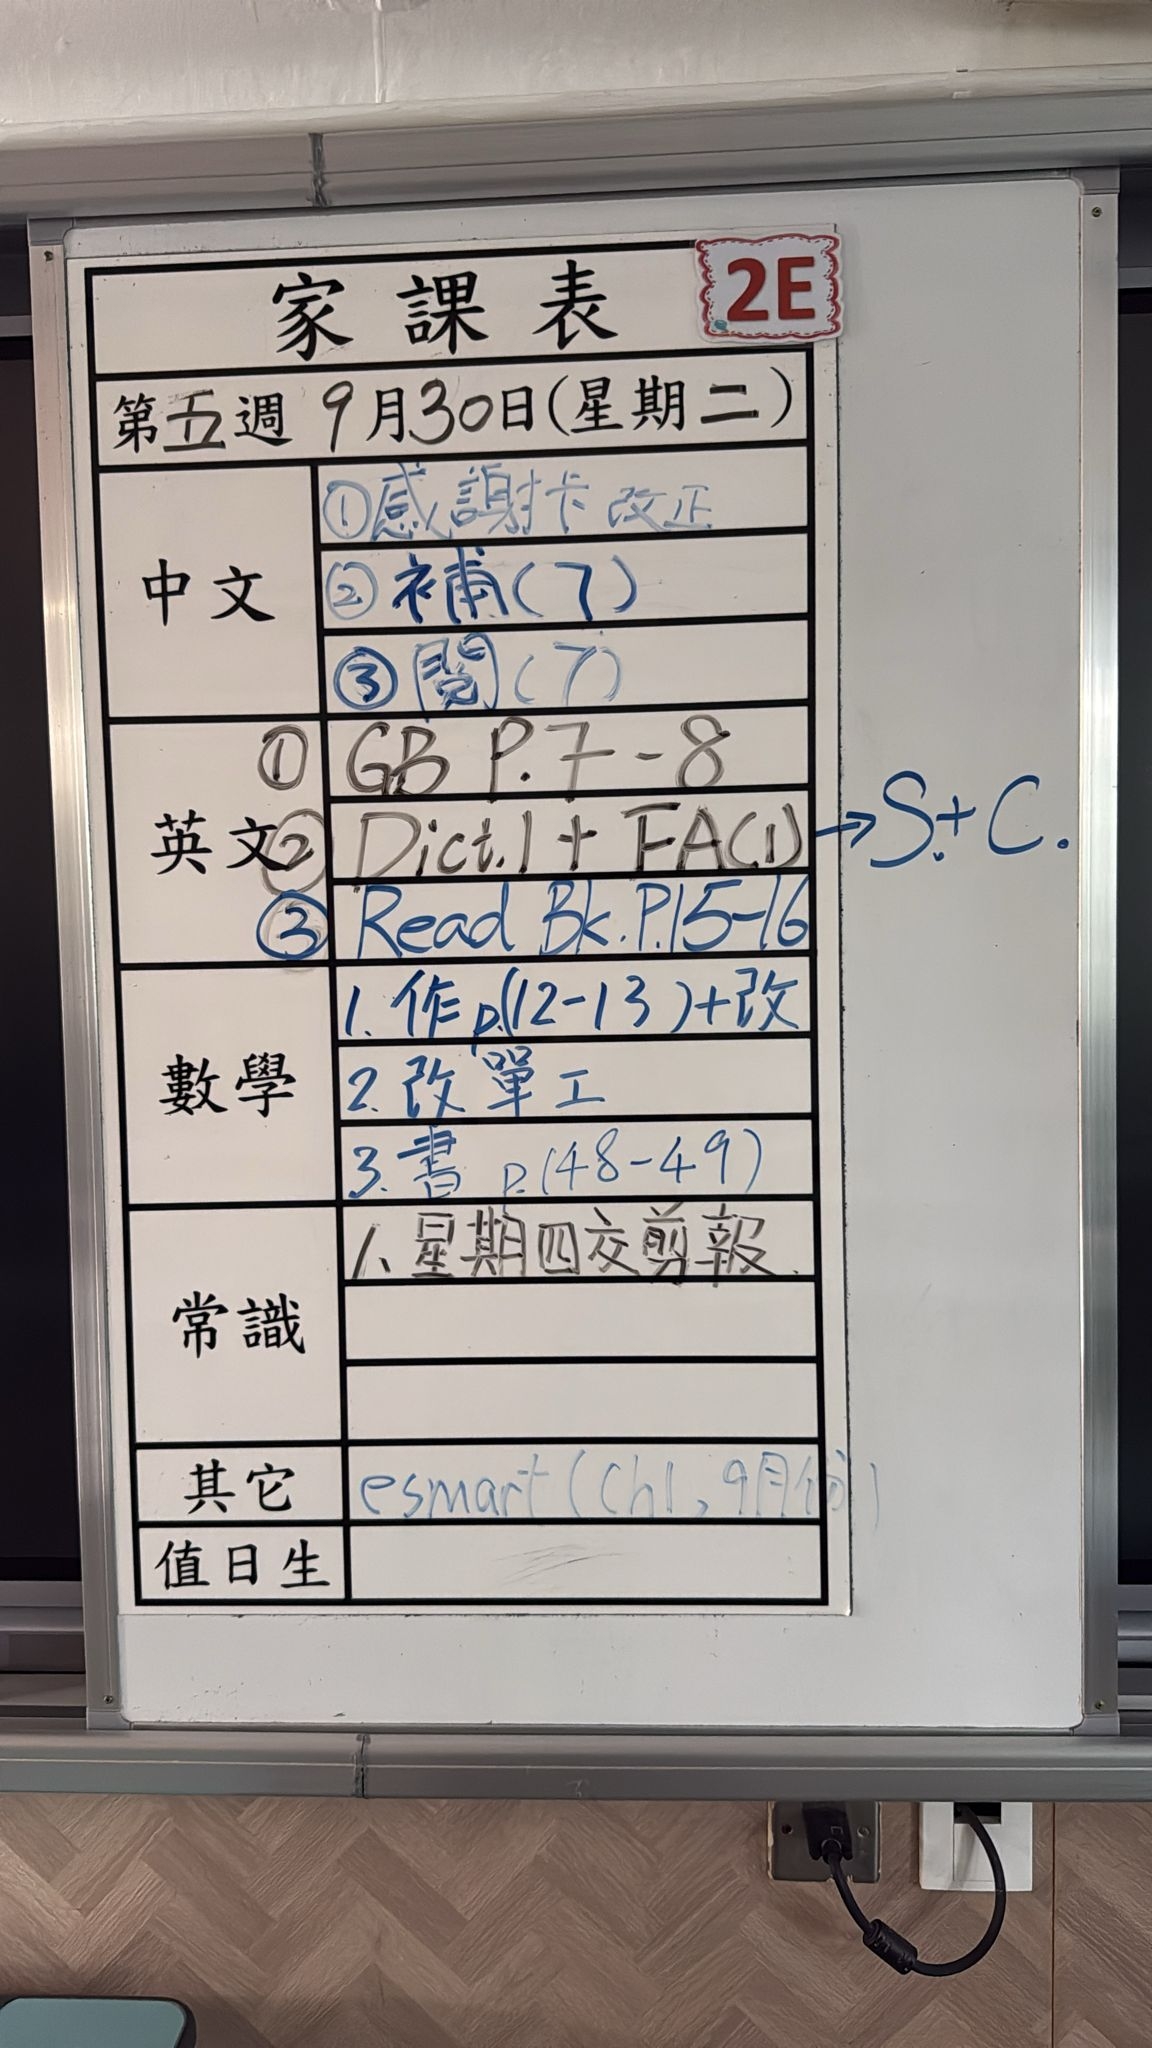 家課表 2E
第五週 9月30日(星期二)
中文
①感謝卡 改正
②補(7)
③閱(7)
英文
① GB P.7-8
② Dict.1 + FA(1) → S.+ C.
③ Read Bk. P.15-16
數學
1. 作p.(12-13)+改
2. 改單工
3. 書 p.(48-49)
常識
1. 星期四交剪報.
其它
esmart (Ch1, 9月份)
值日生